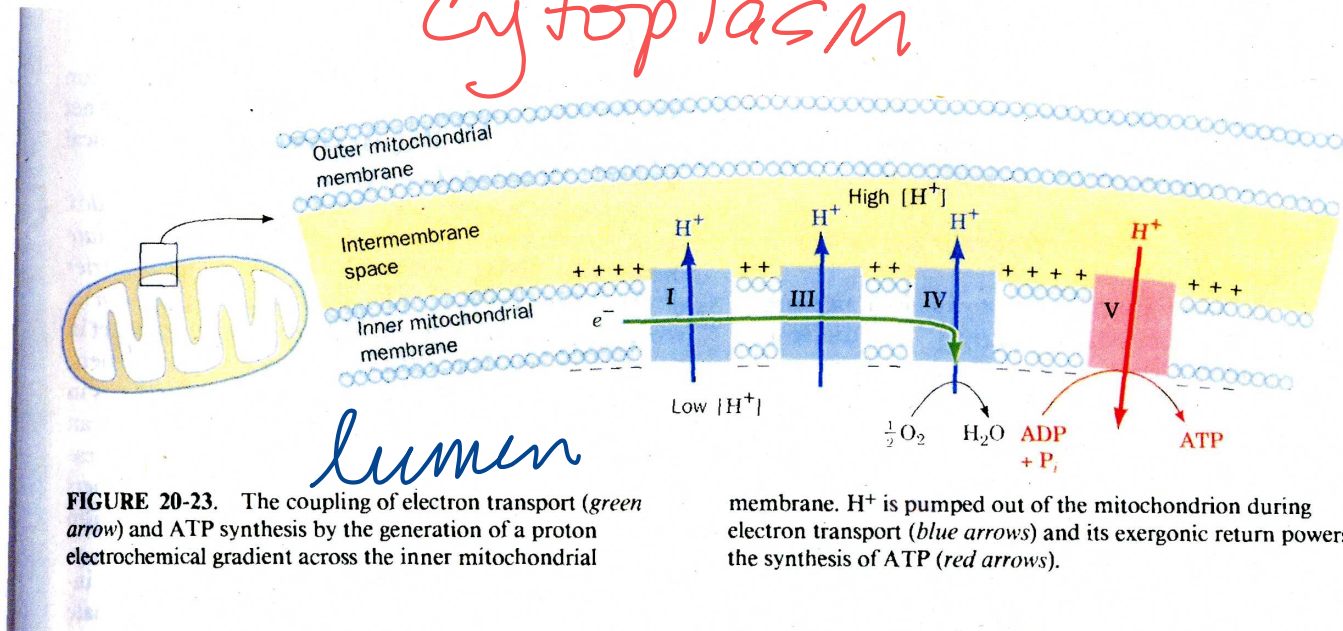 cytoplasm
Outer mitochondrial
membrane
High [H⁺]
Intermembrane
space
H⁺
H⁺
H⁺
H⁺
+ + + +
+ +
+ +
+ + + +
+ + +
I
III
IV
V
Inner mitochondrial
membrane
e⁻
Low [H⁺]
½ O₂
H₂O
ADP
+ Pᵢ
ATP
lumen
FIGURE 20-23. The coupling of electron transport (green
arrow) and ATP synthesis by the generation of a proton
electrochemical gradient across the inner mitochondrial
membrane. H⁺ is pumped out of the mitochondrion during
electron transport (blue arrows) and its exergonic return powers
the synthesis of ATP (red arrows).